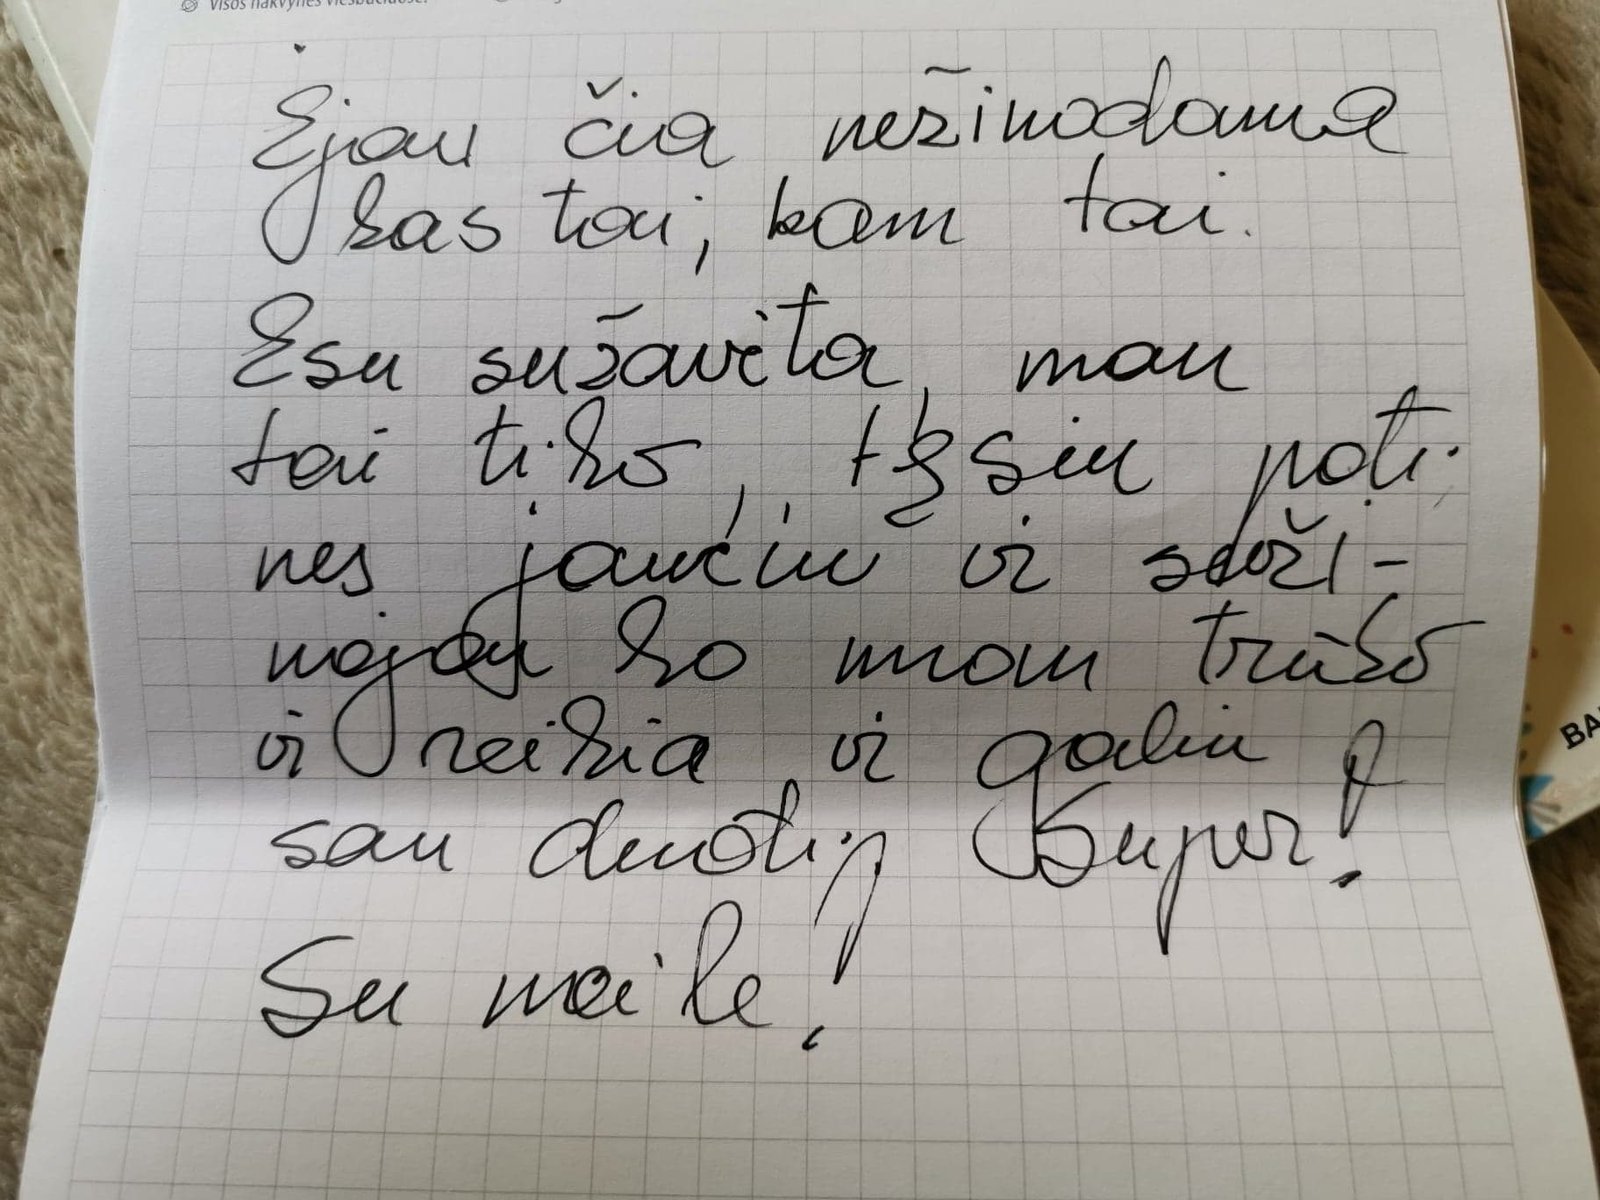 Visos nakvynės viešbučiuose.
Ėjau čia nežinodama
kas tai, kam tai.
Esu sužavėta, man
tai tiko, tęsiu pati
nes jaučiu ir suži-
nojau ko man trūko
ir reikia ir galiu
sau duoti; Super!
Su meile!
BA